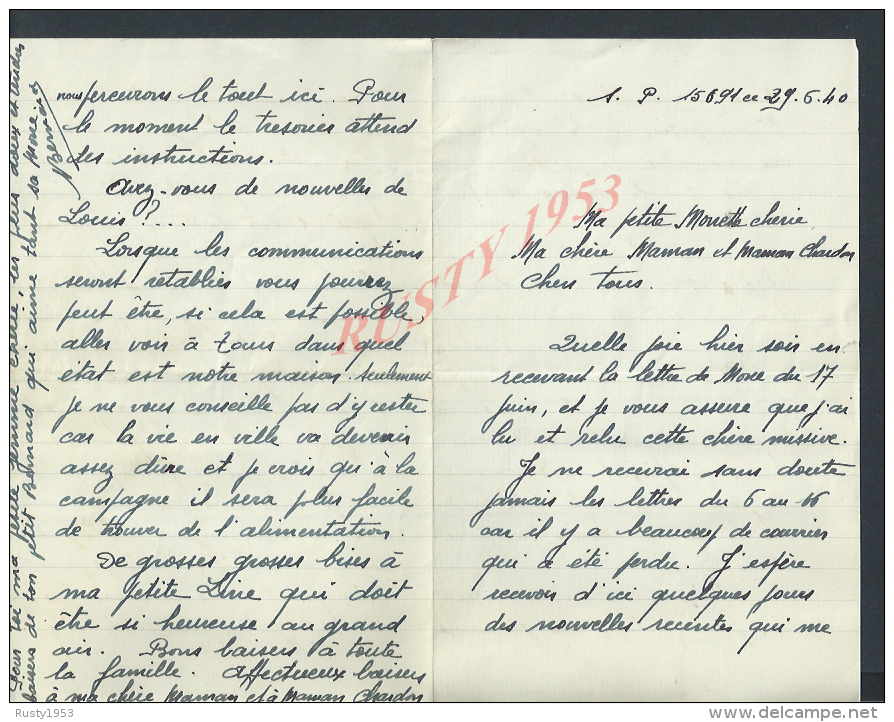 S. P. 15691 ce 29.6.40
Ma petite Monette chérie
Ma chère Maman et Maman Chardon
Chers tous.
Quelle joie hier soir en
recevant la lettre de Mone du 17
juin, et je vous assure que j'ai
lu et relu cette chère missive.
Je ne recevrai sans doute
jamais les lettres du 6 au 16
car il y a beaucoup de courrier
qui a été perdu. J'espère
recevoir d'ici quelques jours
des nouvelles récentes qui me
nous percevrons le tout ici. Pour
le moment le trésorier attend
des instructions.
Avez-vous de nouvelles de
Louis?...
Lorsque les communications
seront rétablies vous pourrez
peut être, si cela est possible,
aller voir à Tours dans quel
état est notre maison. Seulement
je ne vous conseille pas d'y rester
car la vie en ville va devenir
assez dûre et je crois qu'à la
campagne il sera plus facile
de trouver de l'alimentation.
De grosses grosses bises à
ma petite Line qui doit
être si heureuse au grand
air. Bons baisers à toute
la famille. Affectueux baisers
à ma chère Maman et à Maman Chardon
Pour toi ma petite femme chérie, ses plus doux et tendres
baisers de ton petit Bernard qui aime tant sa Mone.
Bernard
RUSTY 1953
Rusty1953
www.delcampe.net